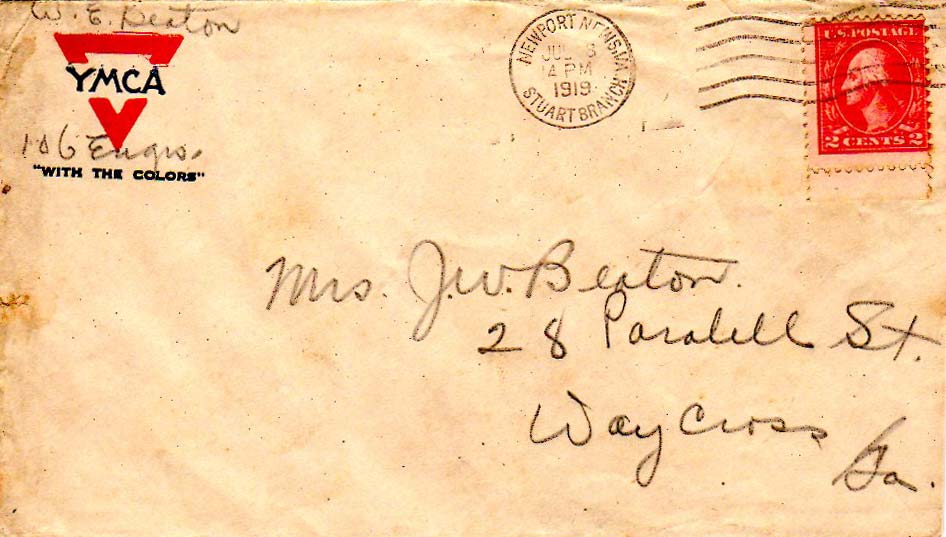 W. E. Beaton
YMCA
106 Engrs.
"WITH THE COLORS"
NEWPORT NEWS, VA.
JUL
4 PM
1919
STUART BRANCH
U.S. POSTAGE
2 CENTS 2
Mrs. J.W. Beaton.
28 Paralell St.
Way Cross
Ga.